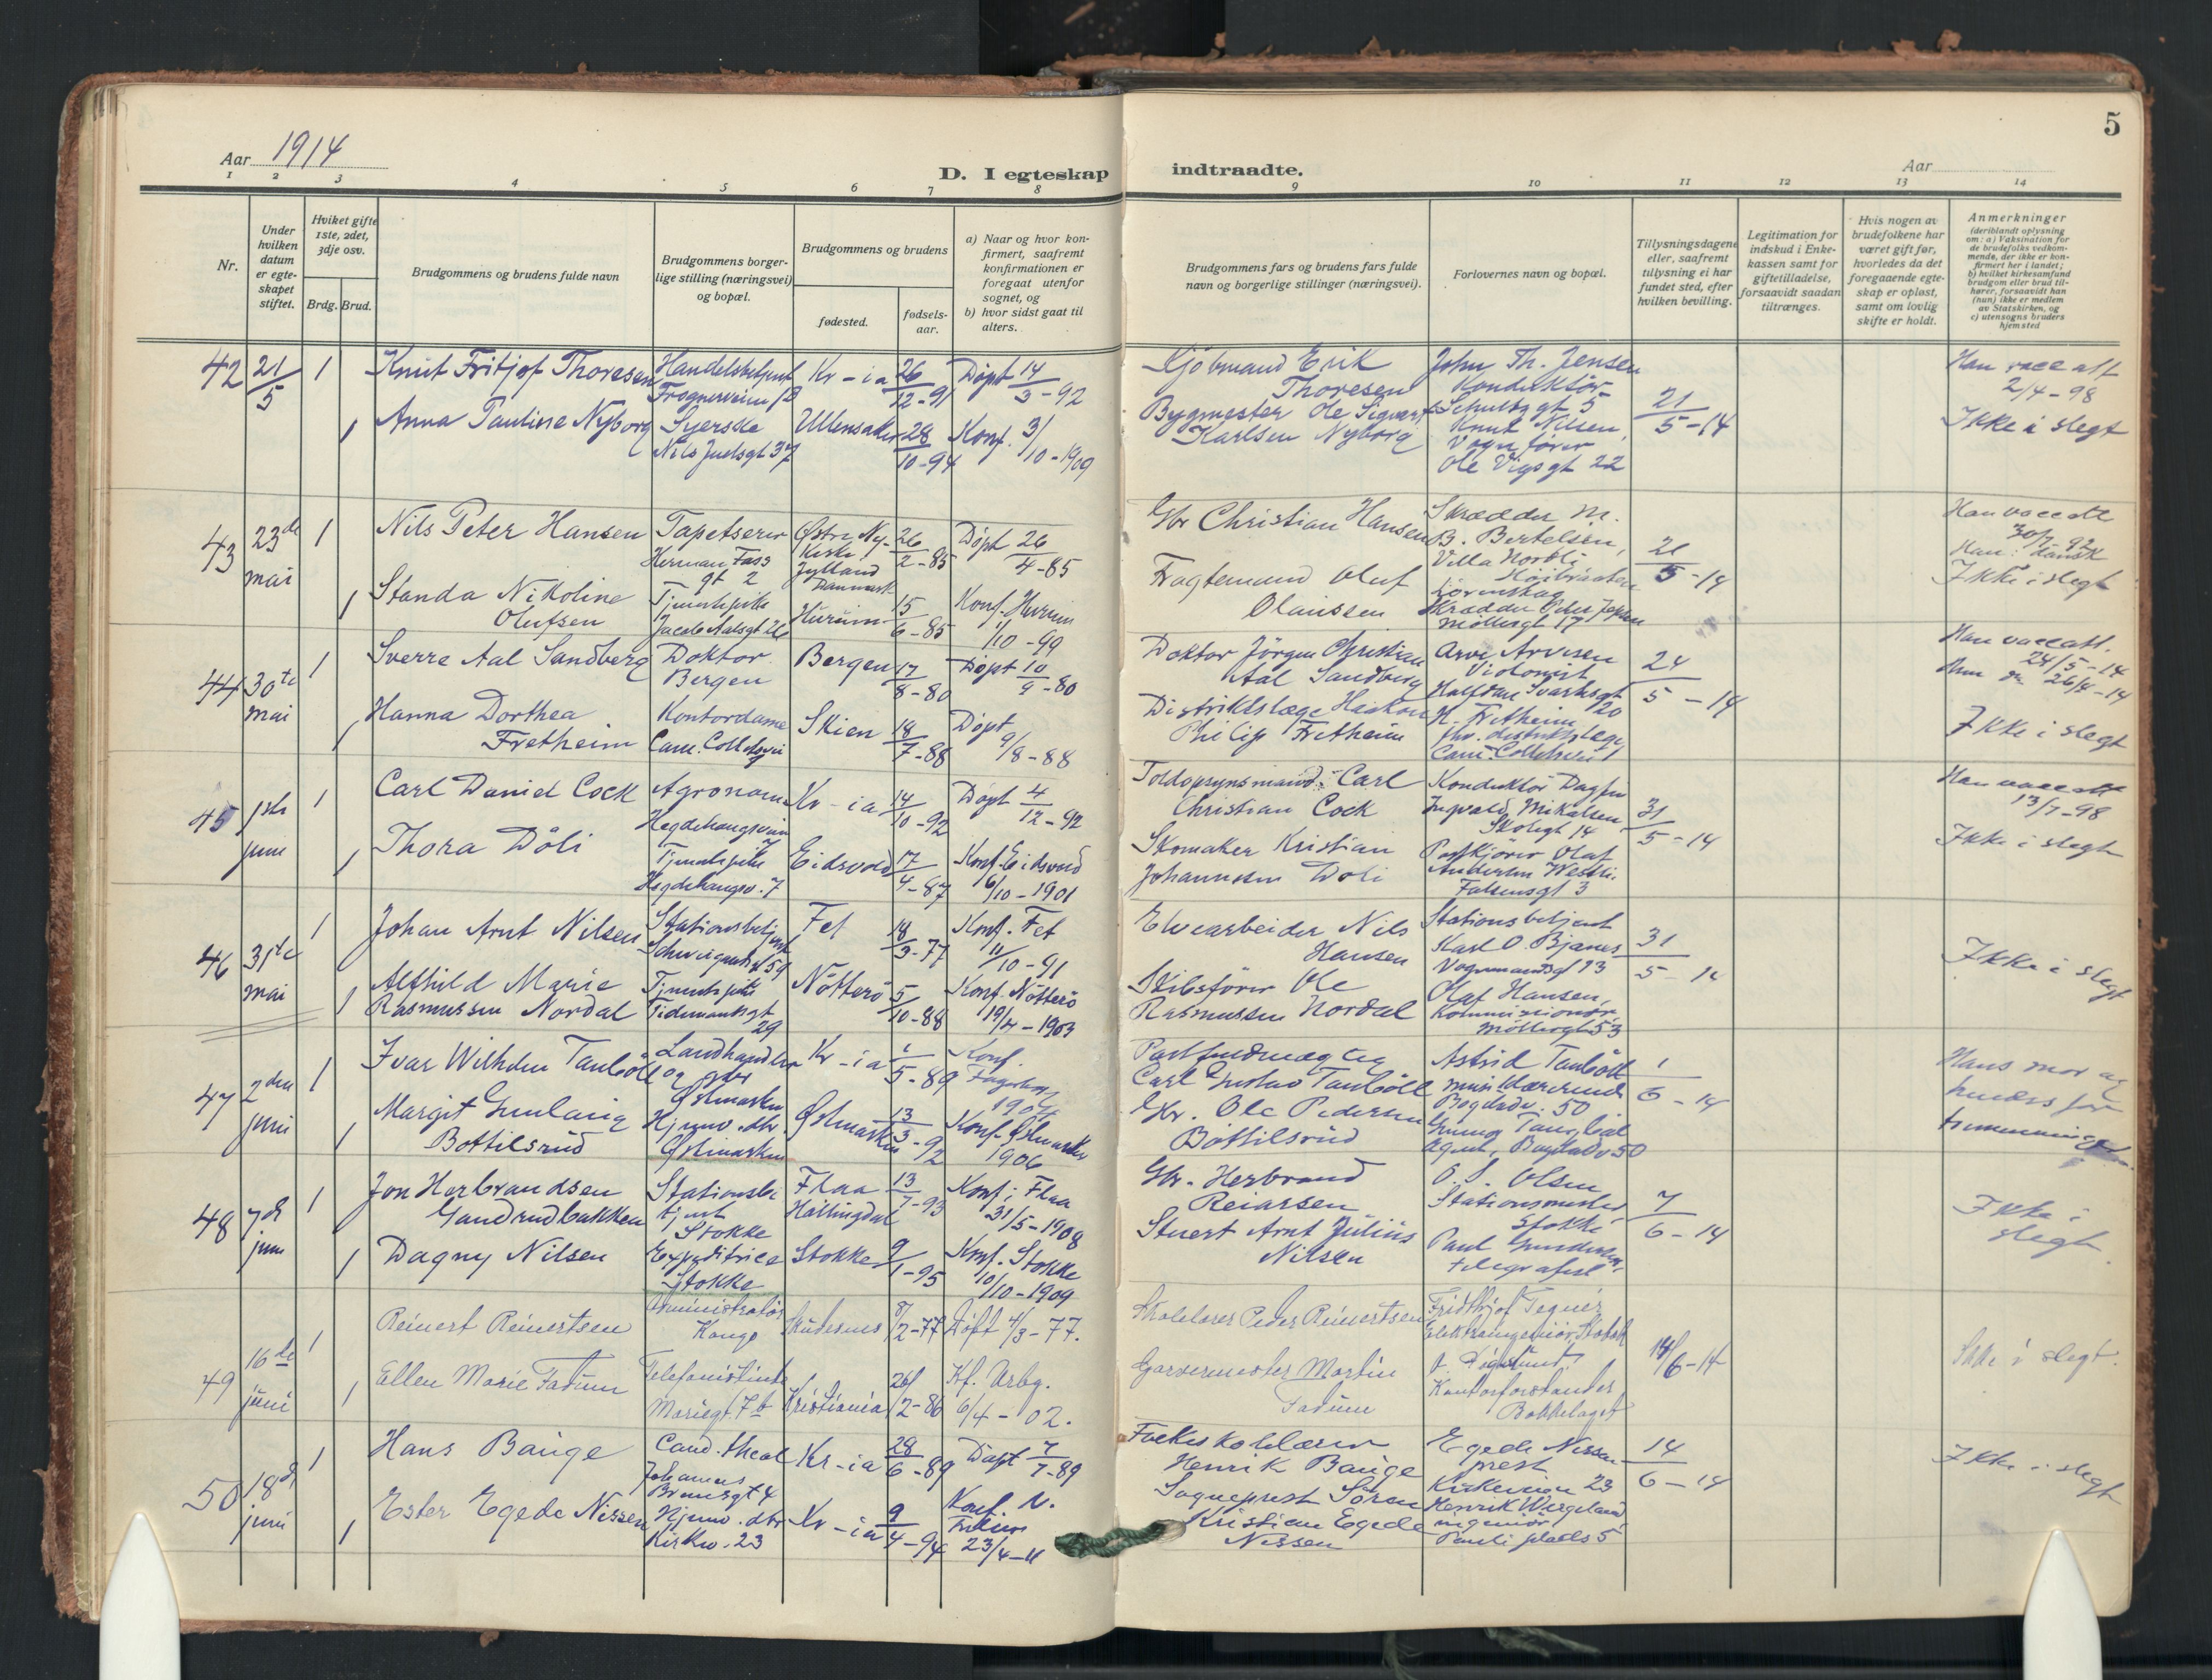 Aar 1914
D. I egteskap
1 2 3 4 5 6 7 8
Nr.
Under hvilken datum er egte-skapet stiftet.
Hviket gifte 1ste, 2det, 3dje osv.
Brdg. Brud.
Brudgommens og brudens fulde navn
Brudgommens borger-lige stilling (næringsvei) og bopæl.
Brudgommens og brudens
fødested.
fødsels-aar.
a) Naar og hvor kon-firmert, saafremt konfirmationen er foregaat utenfor sognet, og
b) hvor sidst gaat til alters.
42 21/5 1 Knut Fritjof Thoresen Handelsbetjent Kr-ia 26/12-91 Døpt 14/3-92
1 Anna Pauline Nyborg Syerske Nils Juelsgt 37 Ullensaker 28/10-94 Konf. 3/10-1909
43 23de mai 1 Nils Peter Hansen Tapetserer Østre Ny- Kirke Jylland Danmark 26/2-85 Døpt 26/4-85
1 Standa Nikoline Olufsen Tjenestepike Jacob Aalsgt 26 Hurum 15/6-85 Konf. Hurum 1/10-99
44 30te mai 1 Sverre Aal Sandberg Doktor Bergen Bergen 17/8-80 Døpt 10/9-80
1 Hanna Dorthea Fretheim Kontordame Cam. Colletsvei Skien 18/7-88 Døpt 9/8-88
45 1ste juni 1 Carl Daniel Cock Agronom Hegdehaugsveien Kr-ia 14/10-92 Døpt 4/12-92
1 Thora Døli Tjenestepike Hegdehaugsv. 7 Eidsvold 17/4-87 Konf. Eidsvold 6/10-1901
46 31te mai 1 Johan Arnt Nilsen Stationsbetjent Schweigaardsgt 59 Fet 18/9-77 Konf. Fet 11/10-91
1 Alfhild Marie Rasmussen Nordal Tjenestepike Tidemandsgt 29 Nøtterø 5/10-88 Konf. Nøtterø 19/4-1903
47 2den juni 1 Ivar Wilhelm Tanbøll Landhandler og gbr Østmarken Kr-ia 1/5-89 Konf. Fagerborg 1904
1 Margit Gunlaug Bottilsrud Hjemv. dtr. Østmarken Østmarken 13/3-92 Konf. Østmarken 1906
48 7de juni 1 Jon Herbrandsen Gandrudbakken Stationsbetjent Stokke Flaa Hallingdal 13/7-93 Konf. i Flaa 31/5-1908
1 Dagny Nilsen Expeditrice Stokke Stokke 9/1-95 Konf. Stokke 10/10-1909
49 16de juni 1 Reinert Reinertsen Administratør Kongo Skudesnes 8/2-77 Døpt 4/3-77.
1 Ellen Marie Fadum Telefonistinde Mariegt. 7b Kristiania 26/2-86 Kf. Urbg. 6/4-02.
50 18de juni 1 Hans Bauge Cand. theol Johannes Brunsgt 4 Kr-ia 28/6-89 Døpt 7/7-89
1 Ester Egede Nissen Hjemv. dtr Kirkev. 23 Kr-ia 9/4-94 Konf. V. Frikirke 23/4-11
5
indtraadte.
Aar
9 10 11 12 13 14
Brudgommens fars og brudens fars fulde navn og borgerlige stillinger (næringsvei).
Forlovernes navn og bopæl.
Tillysningsdagene eller, saafremt tillysning ei har fundet sted, efter hvilken bevilling.
Legitimation for indskud i Enke-kassen samt for giftetilladelse, forsaavidt saadan tiltrænges.
Hvis nogen av brudefolkene har været gift før, hvorledes da det foregaaende egte-skap er opløst, samt om lovlig skifte er holdt.
Anmerkninger
(deriblandt oplysning om: a) Vaksination for de brudefolks vedkom-mende, der ikke er kon-firmert her i landet;
b) hvilket kirkesamfund brudgom eller brud til-hører, forsaavidt han (hun) ikke er medlem av Statskirken, og
c) utensogns bruders hjemsted
Kjøbmand Erik Thoresen John Th. Jensen Konduktør Schultzgt 5 21/5-14 Han vacc att 2/4-98
Bygmester Ole Sigvart Karlsen Nyborg Knut Nilsen, Vognfører Ole Vigsgt 22 Ikke i slegt
Gbr Christian Hansen Skrædder M. B. Bertelsen, Villa Norbli Høibraaten Lørenskog 21/5-14 Han vacc att 30/7-92 Han: dansk
Fragtemand Oluf Olaussen Skrædder Møllergt 17 Ikke i slegt
Doktor Jørgen Christian Aal Sandberg Arve Arvesen Violonist Halfdan Svartesgt 20 24/5-14 Han vacc att. 24/5-14 Hun 26/4-14
Distriktslæge Haakon Philip Fretheim H. Fretheim fhv. distriktslæge Cam. Colletsvei 1 Ikke i slegt
Toldopsynsmand Carl Christian Cock Konduktør Dagfin Ingvald Mikalsen Skolegt 14 31/5-14 Han vacc att 13/7-98
Skomaker Kristian Johannesen Døli Postkjører Olaf Andersen Westli Falsensgt 3 Ikke i slegt
Elvearbeider Nils Hansen Stationsbetjent Karl O Bjanes Vognmandsgt 13 31/5-14 Ikke i slegt
Skibsfører Ole Rasmussen Nordal Olaf Hansen, Kommissionær, Møllergt 53
Postfuldmægtig Carl Gustav Tanbøll Astrid Tanbøll musiklærerinde Bogstadv. 50 1/6-14 Hans mor og hendes far tremenninger
Gbr. Ole Pedersen Bøttilsrud Agent, Bogstadv 50
Gbr. Herbrand Reiarsen O. S. Olsen Stationsmester Stokke 7/6-14 Ikke i slegt.
Stuert Arnt Julius Nilsen Paul Gundersen telegrafist
Skolelærer Peder Reinertsen Fridthjof Tegner Elektroingeniør, 14/6-14 Ikke i slegt.
Garvermester Martin Fadum Kontorforstander
Folkeskolelærer Henrik Bauge Egede Nissen prest Kirkeveien 23 14/6-14 Ikke i slegt
Sogneprest Søren Kristian Egede Nissen Henrik Wergeland ingeniør, Pauli plads 5